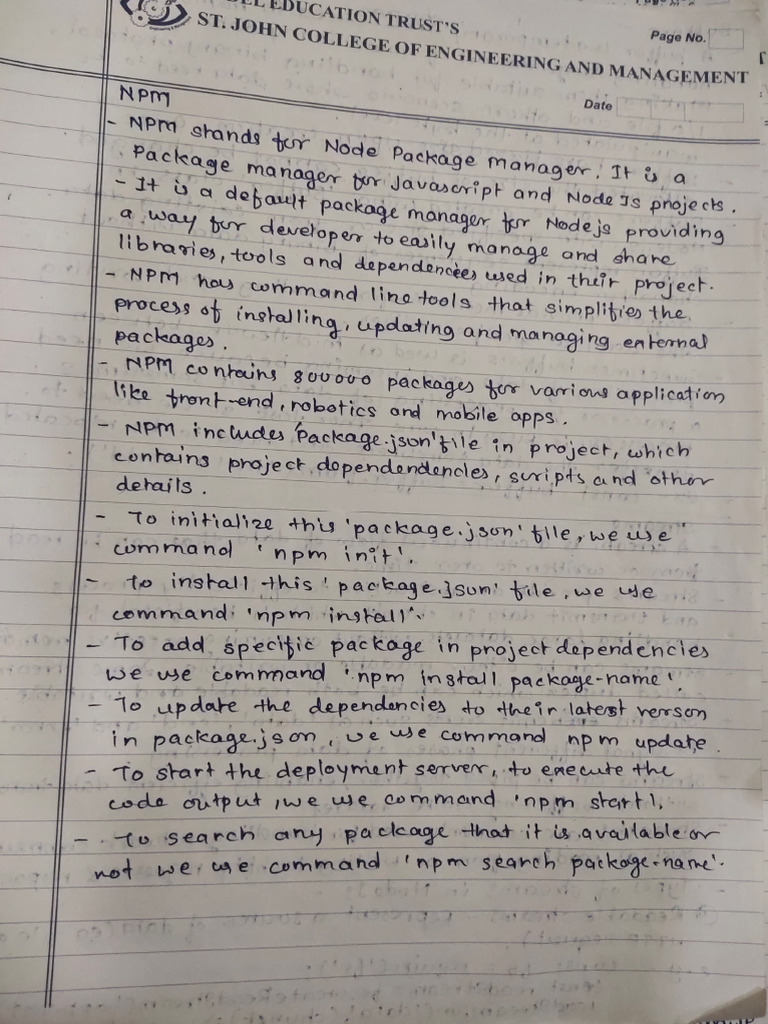 EDUCATION TRUST'S
ST. JOHN COLLEGE OF ENGINEERING AND MANAGEMENT
Page No.
Date
NPM
- NPM stands for Node Package manager. It is a
Package manager for Javascript and Node Js projects.
- It is a default package manager for Nodejs providing
a way for developer to easily manage and share
libraries, tools and dependencies used in their project.
- NPM has command line tools that simplifies the
process of installing, updating and managing external
packages.
- NPM contains 800000 packages for various application
like front-end, robotics and mobile apps.
- NPM includes 'Package.json' file in project, which
contains project dependendencies, scripts and other
details.
- To initialize this 'package.json' file, we use
command 'npm init'.
- to install this 'package.json' file, we use
command 'npm install'.
- To add specific package in project dependencies
we use command 'npm install package-name'.
- To update the dependencies to their latest version
in package.json, we use command npm update.
- To start the deployment server, to execute the
code output, we use command 'npm start'.
- To search any package that it is available or
not we use command 'npm search package-name'.